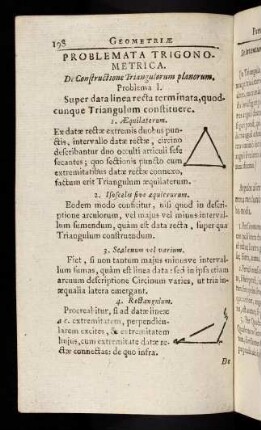 198 GEOMETRIÆ
PROBLEMATA TRIGONO-
METRICA.
De Constructione Triangulorum planorum.
Problema I.
Super data linea recta terminata, quod-
cunque Triangulum constituere.
1. Æquilaterum.
Ex datæ rectæ extremis duobus pun-
ctis, intervallo datæ rectæ, circino
describantur duo occulti articuli sese
secantes; quo sectionis puncto cum
extremitatibus datæ rectæ connexo,
factum erit Triangulum æquilaterum.
2. Isosceles sive æquicrurum.
Eodem modo conficitur, nisi quod in descri-
ptione arculorum, vel majus vel minus interval-
lum sumendum, quàm est data recta, super qua
Triangulum construendum.
3. Scalenum vel varium.
Fiet, si non tantum majus minusve interval-
lum sumas, quàm est linea data: sed in ipsa etiam
arcuum descriptione Circinum varies, ut tria in-
æqualia latera emergant.
4. Rectangulum.
Procreabitur, si ad datæ lineæ
a c. extremitatem, perpendicu-
larem excites, & extremitatem
hujus, cum extremitate datæ re-
ctæ connectas: de quo infra.
De